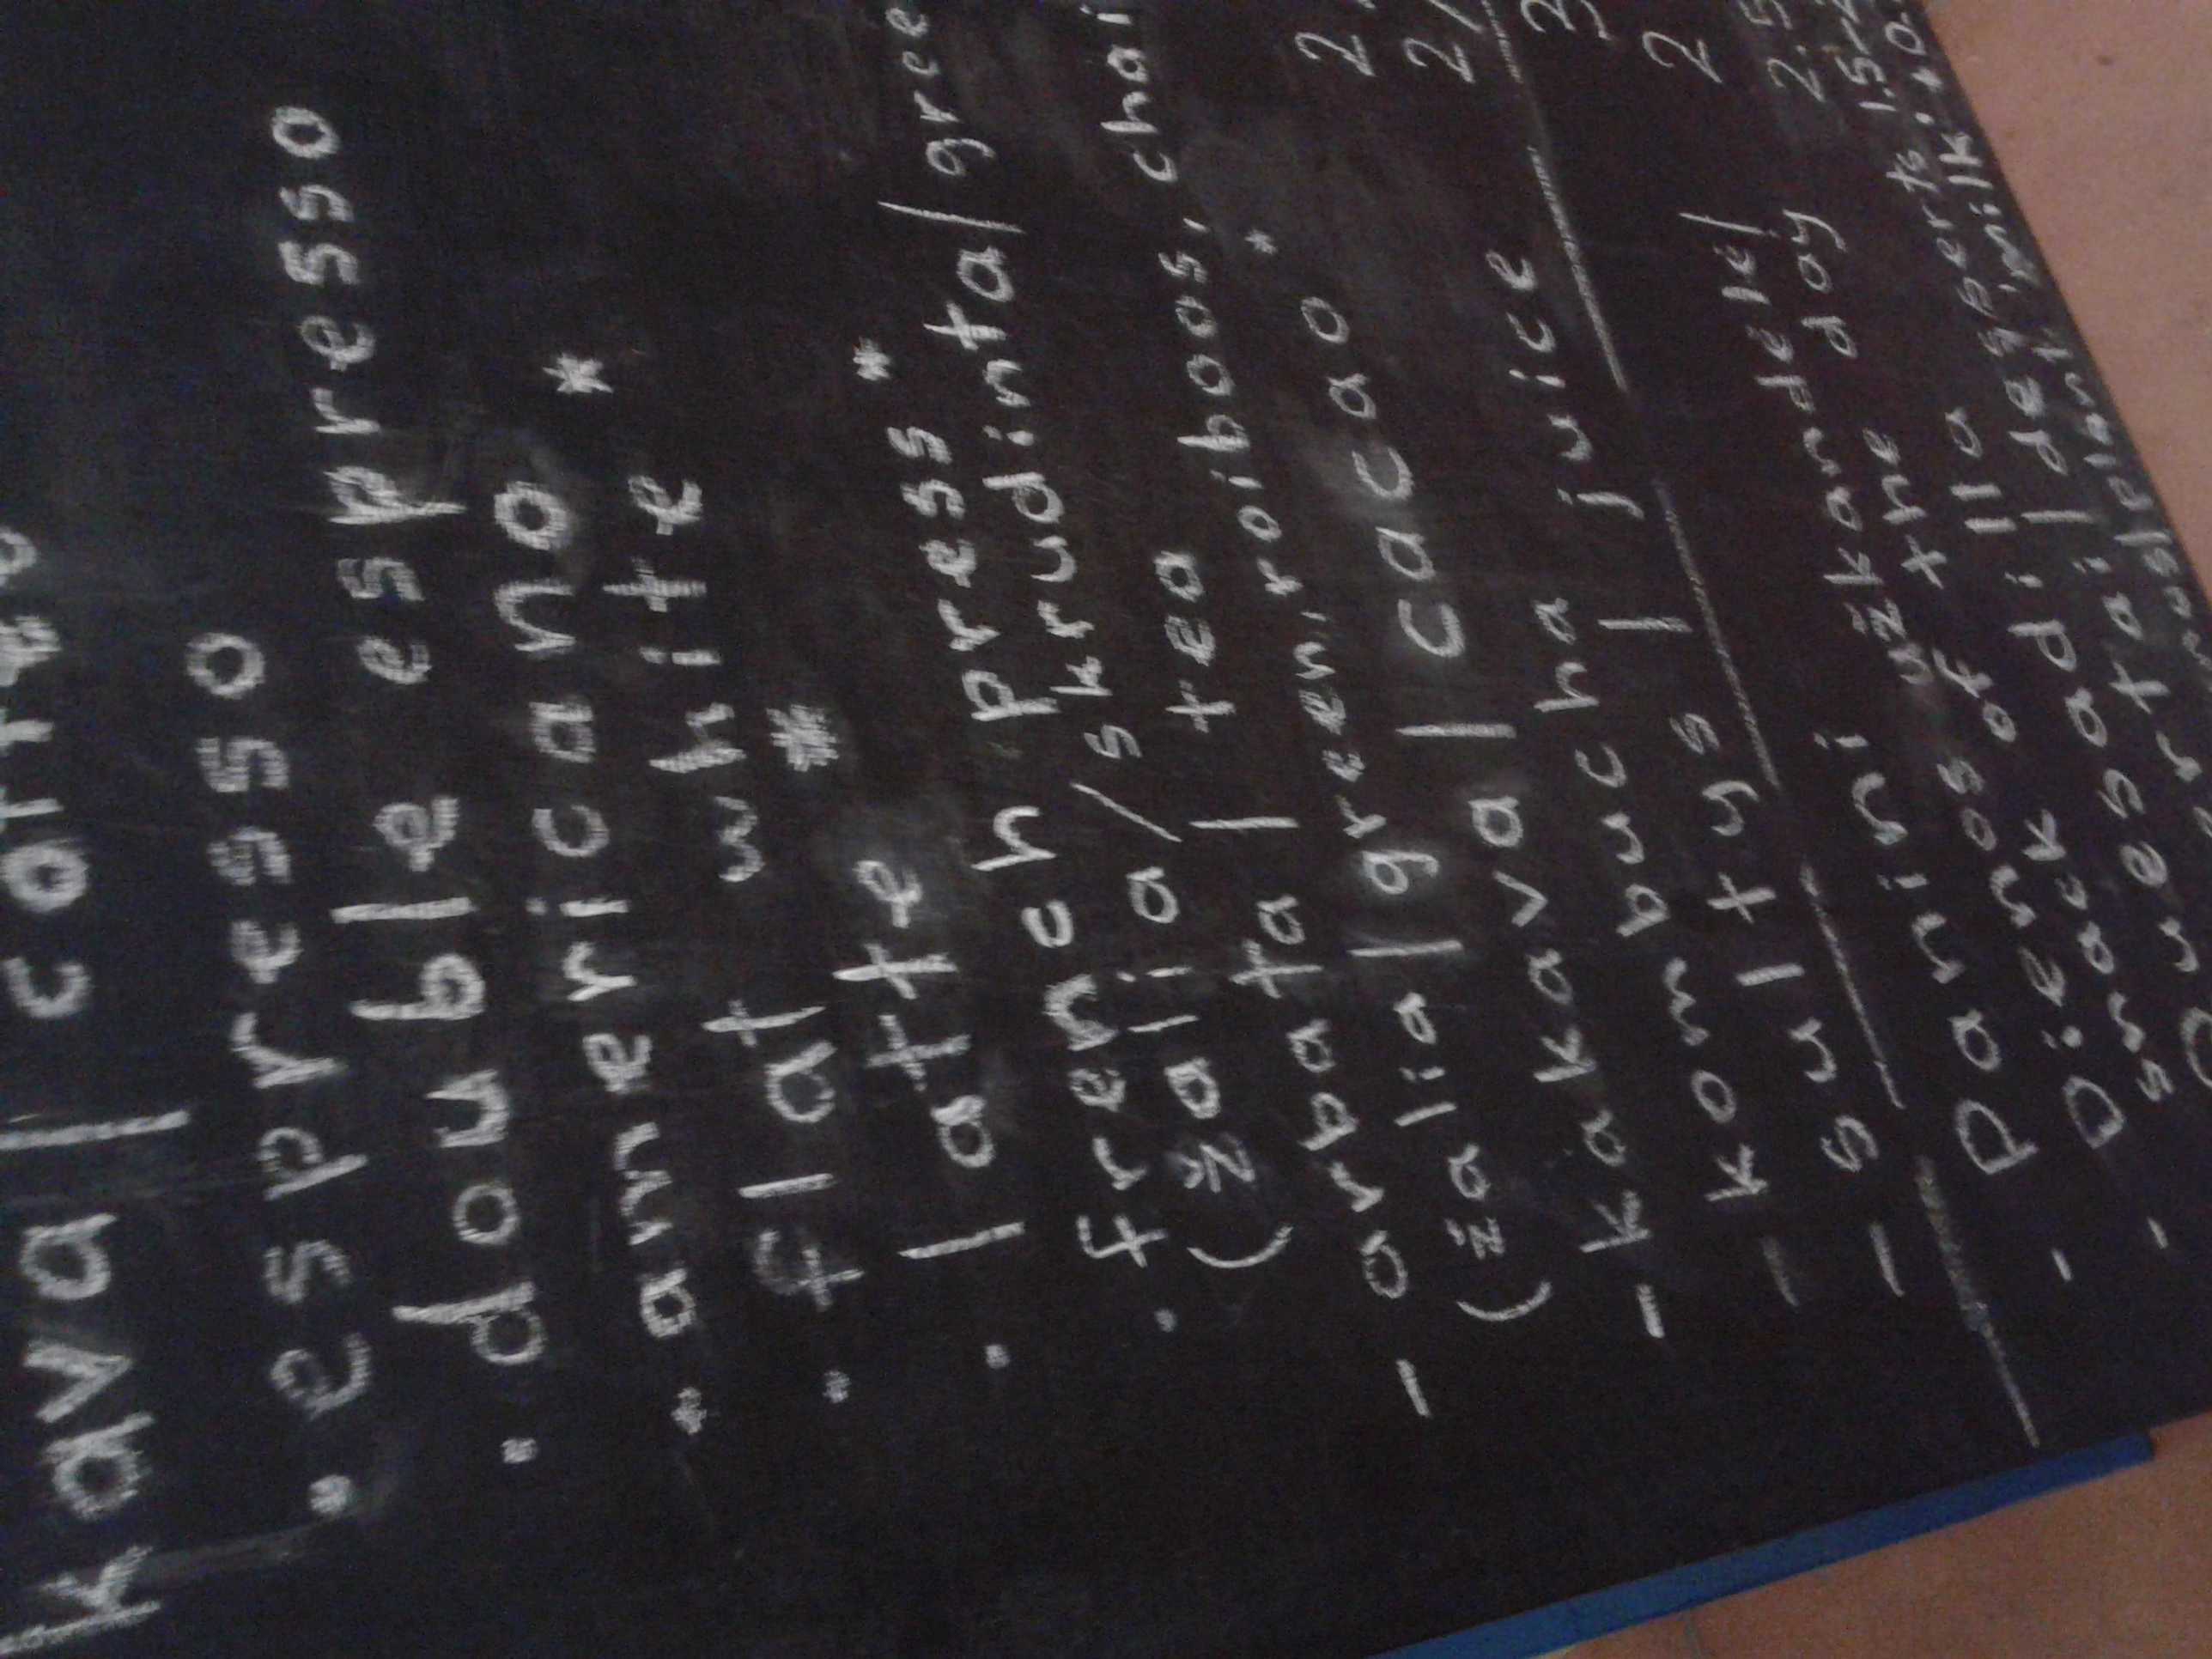 kava/ coffee
• espresso
• double espresso
• americano
• flat white *
• latte *
• french press *
(žalia/skrudinta/gree
- arbata / tea
(žalia/green, roiboos, chai
- kakava / cacao * 2,
- kombucha 2,
- sultys / juice
- Panini 2
- Dienos užkandėlė/
snack of the day 2.5
Quesadilla
ertai/desserts 1.5-
plant 'milk' +0.